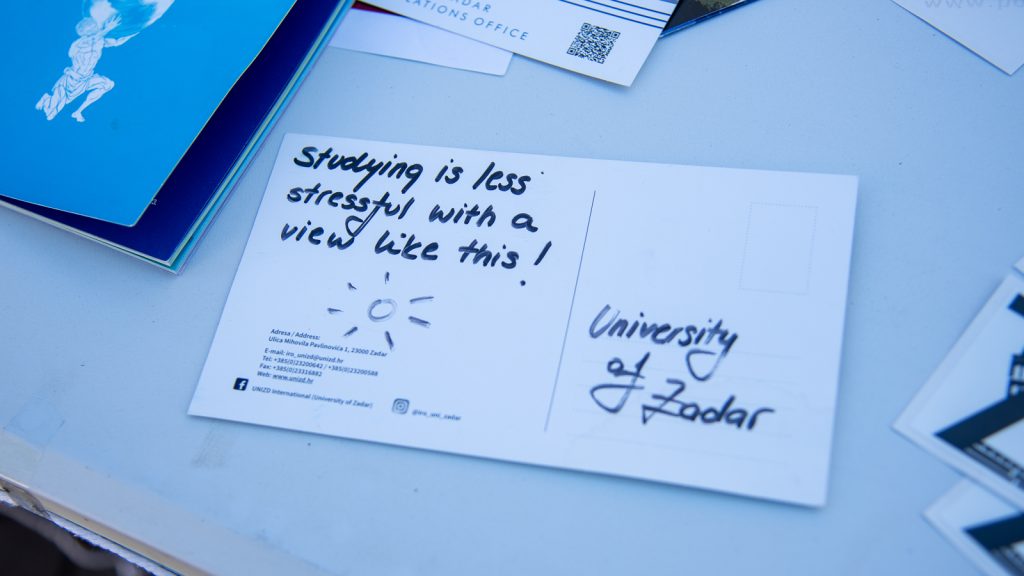 ADAR
LATIONS OFFICE
Studying is less
stressful with a
view like this!
Adresa / Address:
Ulica Mihovila Pavlinovića 1, 23000 Zadar
E-mail: iro_unizd@unizd.hr
Tel: +385(0)23200642 / +385(0)23200588
Fax: +385(0)23316882
Web: www.unizd.hr
UNIZD International (University of Zadar)
@iro_uni_zadar
University
of
Zadar